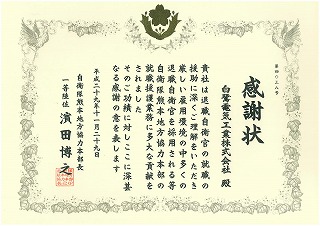 第四〇三八号
感謝状
白鷺電気工業株式会社 殿
貴社は退職自衛官の就職の
援助に深くご理解をいただき
厳しい雇用環境の中多くの
退職自衛官を採用される等
自衛隊熊本地方協力本部の
就職援護業務に多大な貢献を
されました
そのご功績に対しここに深甚
なる感謝の意を表します
平成二十九年十一月二十九日
自衛隊熊本地方協力本部長
一等陸佐 濱田博之